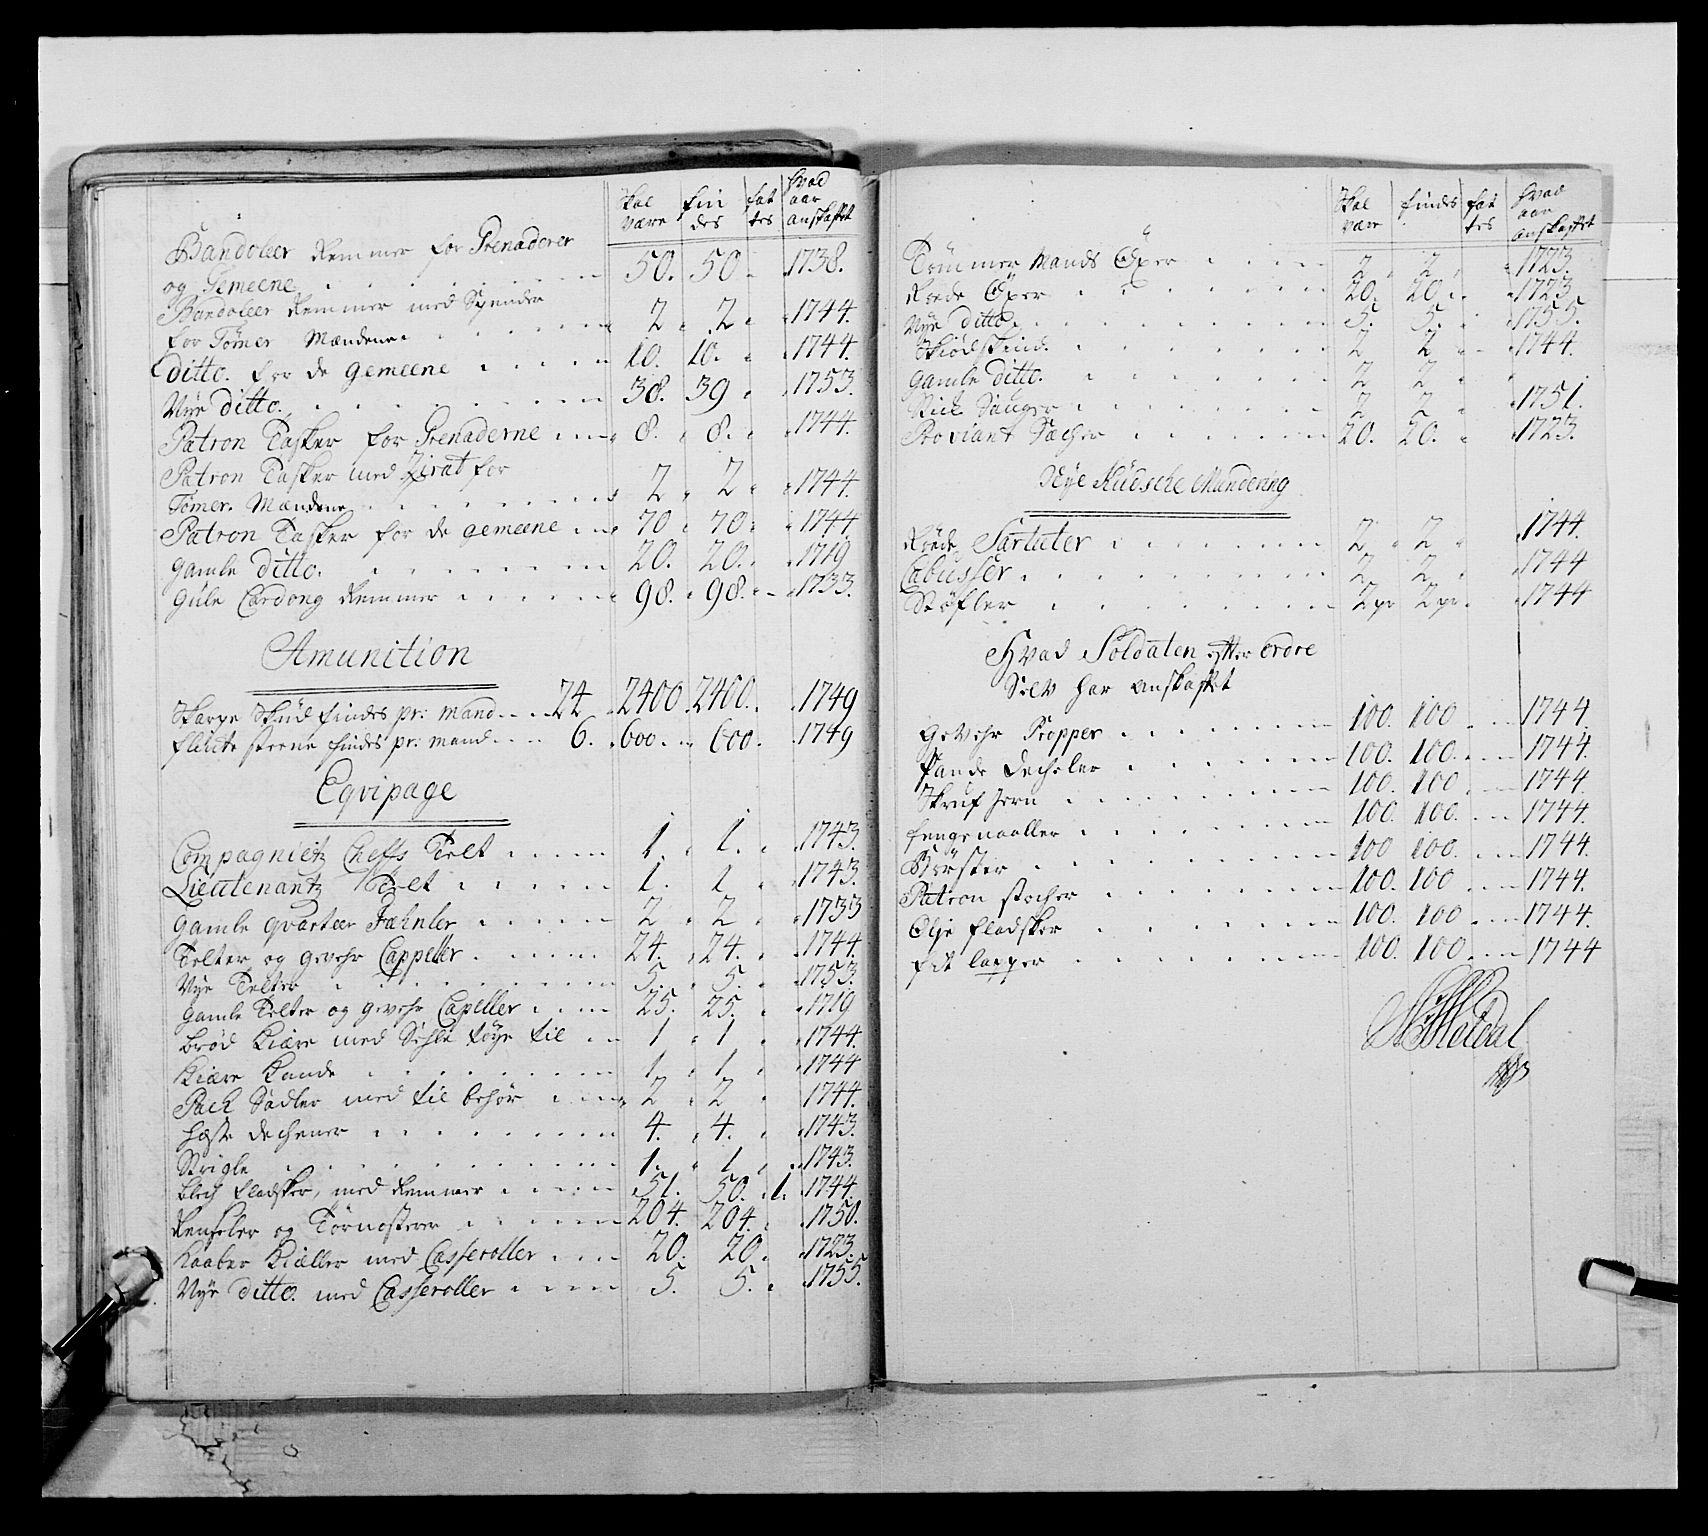 Skal være | fin des | fat tes | hvad aar anskaffet
Bandoleer Remmer for Grenaderer
og Gemeene . . . 50. 50 1738.
Bandoleer Remmer med Spender
for Tømer Mændene . . 2 2 1744.
ditto. for de gemeene . . . 10. 10. 1744.
Nye ditto. . . . 38. 39 1753.
Patron Tasker for Grenaderne . . 8. 8. 1744.
Patron Tasker med Zirat for
Tømer Mændene . . . 2 2 1744.
Patron Tasker for de gemeene . . 70 70 1744.
Gamle ditto. . . . 20. 20. 1719
Gule Cardong Remmer . . . 98. 98. 1733.
Amunition
Skarpe Skud findes pr: mand . . 24. 2400 2400. 1749
flinte steene findes pr: mand . . 6. 600. 600. 1749
Eqvipage
Compagnietz Cheffs Telt . . . 1. 1. 1743.
Lieutenantz Telt . . . 1. 1 1743.
Gamle qvarteer Fahnler . . . 2 2 1733
Telter og gevehr Cappeller . . . 24. 24. 1744.
Nye Telter . . . 5. 5. 1753.
Gamle Telter og gevehr Capeller . . 25. 25. 1719
Brød Kiære med Sehle tøye til . . 1 1 1744.
Kiære Kande . . . 1. 1 1744
Pack Sadler med til behør . . 2 2 1744.
Heste dechener . . . 4. 4. 1743.
Strigle . . . 1. 1 1743.
blech fladsker, med Remmer . . . 51. 50. 1. 1744.
Rentzler og Tørnosterer . . . 204. 204. 1750.
Kaaber Kieller med Casseroller . . 20. 20. 1723.
Nye ditto. med Casseroller . . . 5. 5. 1755.
Skal være | findes | fat tes | hvad aar anskaffet
Tømmer Mands Öxer . . . 2 2 1723.
Rede Öxer . . . 20. 20. 1723
Nye ditto. . . . 5. 5. 1755.
Skiødskind. . . . 2 2 1744.
Gamle ditto. . . . 2 2
. . . 2 2 1751.
Proviant Sæcher . . . 20. 20. 1723.
Nye Kudsche Mundering
Røde Sartuter . . . 2 2 1744.
Cabusser . . . 2 2 1744
Støfler . . . 2 pr 2 pr 1744
Hvad Soldaten efter ordre
Selv har anskaffet
Gevehr Propper . . . 100. 100 1744.
Pande Decheler . . . 100. 100. 1744.
Skruf Jern . . . 100. 100 1744.
fengenaaller . . . 100. 100. 1744.
Børster . . . 100 100. 1744.
Patron stocher . . . 100. 100 1744.
Olje fladsker . . . 100. 100 1744.
fet lapper . . . 100. 100 1744